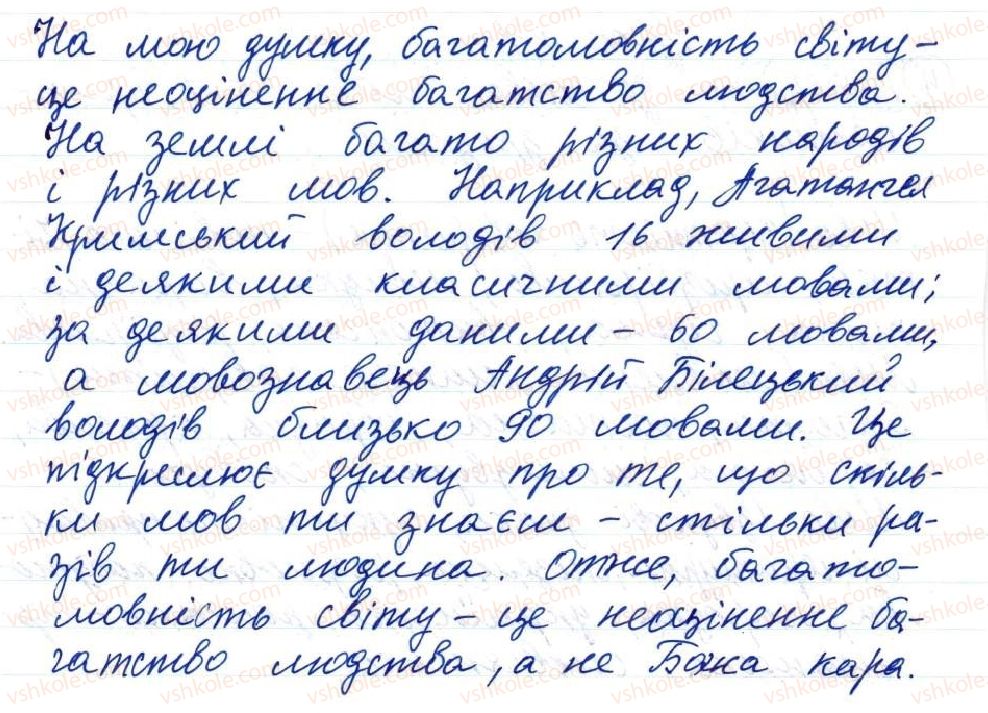 На мою думку, багатомовність світу –
це неоціненне багатство людства.
На землі багато різних народів
і різних мов. Наприклад, Агатангел
Кримський володів 16 живими
і деякими класичними мовами;
за деякими даними – 60 мовами,
а мовознавець Андрій Білецький
володів близько 90 мовами. Це
підкреслює думку про те, що скіль-
ки мов ти знаєш – стільки ра-
зів ти людина. Отже, багато-
мовність світу – це неоціненне ба-
гатство людства, а не Божа кара.